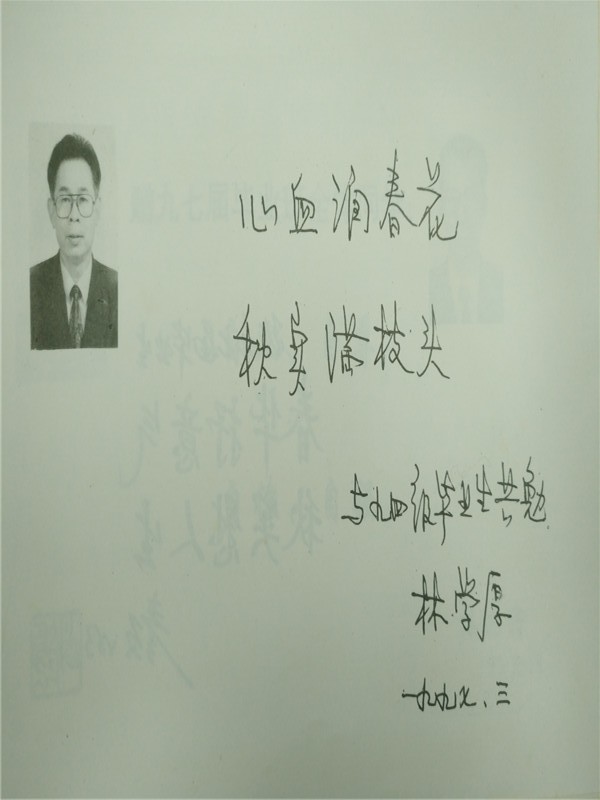 心血润春花
秋实满枝头
与九四级毕业生共勉
林学厚
一九九七.三